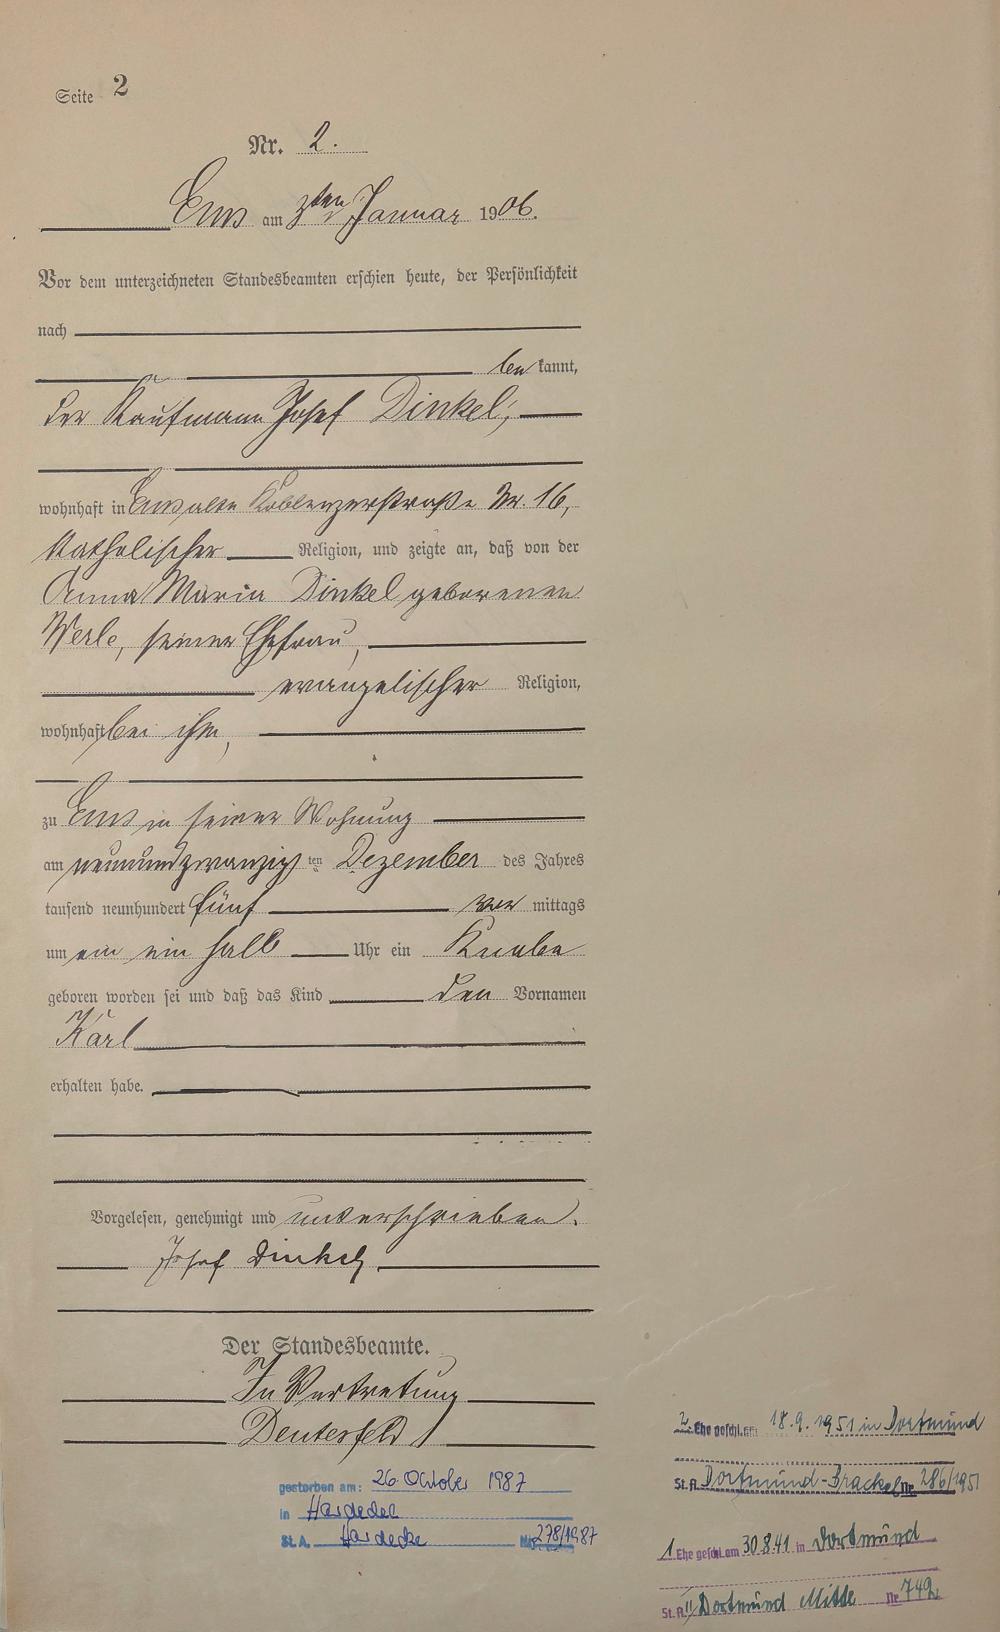 Seite 2
Nr. 2.
Ems am 3ten Januar 1906.
Vor dem unterzeichneten Standesbeamten erschien heute, der Persönlichkeit
nach
be kannt,
der Kaufmann Josef Dinkel,
wohnhaft in Ems alte Koblenzerstraße Nr. 16,
katholischer Religion, und zeigte an, daß von der
Anna Maria Dinkel geborenen
Werle, seiner Ehefrau,
evangelischer Religion,
wohnhaft bei ihm,
zu Ems in seiner Wohnung
am neunundzwanzig ten Dezember des Jahres
tausend neunhundert fünf vor mittags
um ein ein halb Uhr ein Knabe
geboren worden sei und daß das Kind den Vornamen
Karl
erhalten habe.
Vorgelesen, genehmigt und unterschrieben.
Josef Dinkel
Der Standesbeamte.
In Vertretung
gestorben am: 26. October 1987
in
St. A. Nr. 278/1987
2. Ehe geschl. am 18.9.1951 in Dortmund
St. A. Dortmund-Brackel Nr. 286/1951
1 Ehe geschl. am 30.8.41 in Dortmund
St. A. Dortmund Mitte Nr. 742